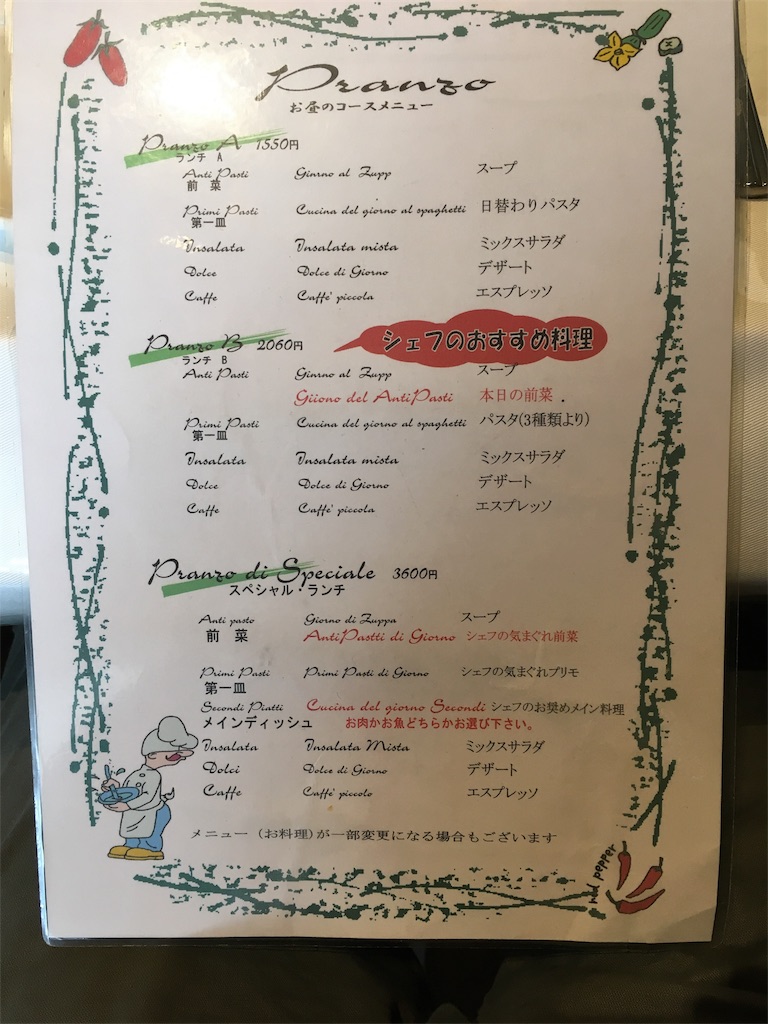 Pranzo
お昼のコースメニュー
Pranzo A 1550円
ランチ A
Anti Pasti Giorno al Zupp スープ
前菜
Primi Pasti Cucina del giorno al spaghetti 日替わりパスタ
第一皿
Insalata Insalata mista ミックスサラダ
Dolce Dolce di Giorno デザート
Caffe Caffe' piccola エスプレッソ
Pranzo B 2060円 シェフのおすすめ料理
ランチ B
Anti Pasti Giorno al Zupp スープ
Giiono del AntiPasti 本日の前菜 .
Primi Pasti Cucina del giorno al spaghetti パスタ(3種類より)
第一皿
Insalata Insalata mista ミックスサラダ
Dolce Dolce di Giorno デザート
Caffe Caffe' piccola エスプレッソ
Pranzo di Speciale 3600円
スペシャル・ランチ
Anti pasto Giorno di Zuppa スープ
前菜 AntiPastti di Giorno シェフの気まぐれ前菜
Primi Pasti Primi Pasti di Giorno シェフの気まぐれプリモ
第一皿
Secondi Piatti Cucina del giorno Secondi シェフのお奨めメイン料理
メインディッシュ お肉かお魚どちらかお選び下さい。
Insalata Insalata Mista ミックスサラダ
Dolci Dolce di Giorno デザート
Caffe Caffe' piccolo エスプレッソ
メニュー (お料理)が一部変更になる場合もございます
red pepper